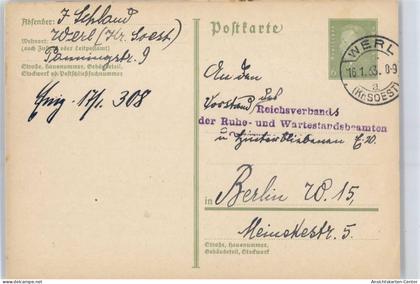 Absender: J. Schland
Werl (Kr. Soest)
Wohnort:
(auch Zustell- oder Leitpostamt)
Straße, Hausnummer, Gebäudeteil,
Stockwerk od. Postschließfachnummer
Eing. 17/1. 308
Postkarte
WERL
16.1.33. 8-9
a
(Kr. SOEST)
An den
Vorstand des
Reichsverbands
der Ruhe- und Wartestandsbeamten
u. Hinterbliebenen E.V.
in Berlin W. 15,
Meinekestr. 5.
Straße, Hausnummer,
Gebäudeteil, Stockwerk